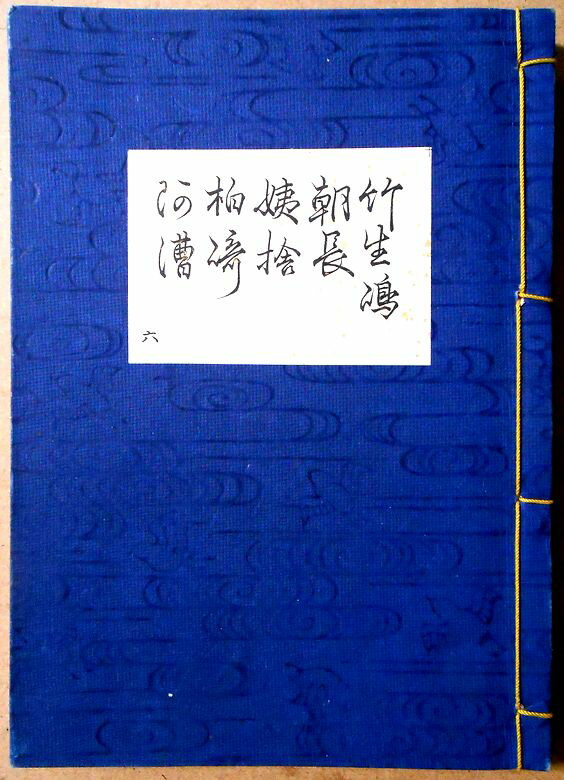 竹生嶋
朝長
姨捨
柏崎
阿漕
六